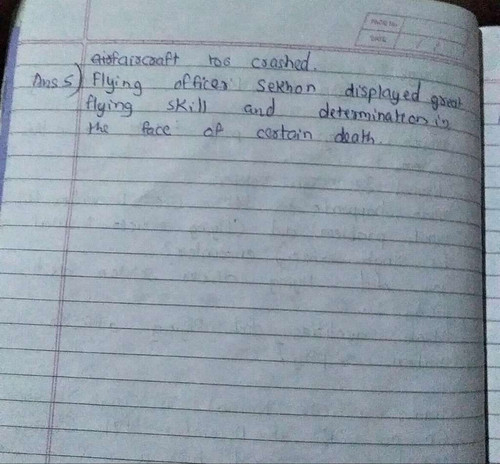 aircraft too crashed.
Ans 5) Flying officer Sekhon displayed great
flying skill and determination in
the face of certain death
PAGE No.
DATE